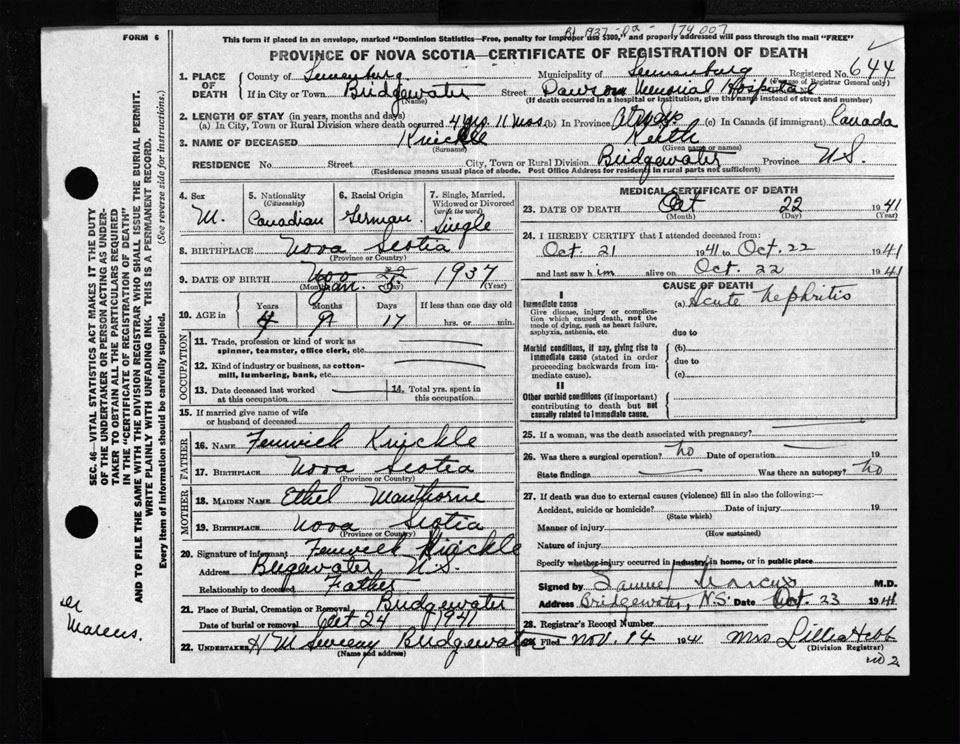 BI 1937-02-174007
FORM 6
This form if placed in an envelope, marked "Dominion Statistics—Free, penalty for improper use $300," and properly addressed will pass through the mail "FREE"
PROVINCE OF NOVA SCOTIA—CERTIFICATE OF REGISTRATION OF DEATH
1. PLACE OF DEATH
County of Lunenburg Municipality of Lunenburg Registered No. 644
(For use of Registrar General only)
If in City or Town Bridgewater Street Dawson Memorial Hospital
(Name) (If death occurred in a hospital or institution, give the name instead of street and number)
2. LENGTH OF STAY (in years, months and days)
(a) In City, Town or Rural Division where death occurred 4 yrs. 11 mos. (b) In Province (c) In Canada (if immigrant) Canada
3. NAME OF DECEASED Knickle Keith
(Surname) (Given name or names)
RESIDENCE No. Street City, Town or Rural Division Bridgewater Province N.S.
(Residence means usual place of abode. Post Office Address for residents in rural parts not sufficient)
4. Sex M.
5. Nationality (Citizenship) Canadian
6. Racial Origin German
7. Single, Married, Widowed or Divorced (write the word) Single
8. BIRTHPLACE Nova Scotia
(Province or Country)
9. DATE OF BIRTH Nov Jan. 1937
(Month) (Day) (Year)
10. AGE in Years Months Days If less than one day old
4 9 17 hrs. or min.
OCCUPATION
11. Trade, profession or kind of work as spinner, teamster, office clerk, etc.
12. Kind of industry or business, as cotton-mill, lumbering, bank, etc.
13. Date deceased last worked at this occupation
14. Total yrs. spent in this occupation
15. If married give name of wife or husband of deceased
FATHER
16. NAME Fenwick Knickle
17. BIRTHPLACE Nova Scotia
(Province or Country)
MOTHER
18. MAIDEN NAME Ethel Manthorne
19. BIRTHPLACE Nova Scotia
(Province or Country)
20. Signature of informant Fenwick Knickle
Address Bridgewater N.S.
Relationship to deceased Father
21. Place of Burial, Cremation or Removal Bridgewater
Date of burial or removal Oct 24 1941
22. UNDERTAKER H M Sweeny Bridgewater
(Name and address)
MEDICAL CERTIFICATE OF DEATH
23. DATE OF DEATH Oct 22 1941
(Month) (Day) (Year)
24. I HEREBY CERTIFY that I attended deceased from:
Oct. 21 1941 to Oct. 22 1941
and last saw him alive on Oct. 22 1941
CAUSE OF DEATH
I
Immediate cause (a) Acute Nephritis
Give disease, injury or complication which caused death, not the mode of dying, such as heart failure, asphyxia, asthenia, etc.
due to
Morbid conditions, if any, giving rise to immediate cause (stated in order proceeding backwards from immediate cause).
(b)
due to
(c)
II
Other morbid conditions (if important) contributing to death but not causally related to immediate cause.
25. If a woman, was the death associated with pregnancy?
26. Was there a surgical operation? no Date of operation 19
State findings Was there an autopsy? no
27. If death was due to external causes (violence) fill in also the following:—
Accident, suicide or homicide? Date of injury 19
(State which)
Manner of injury
(How sustained)
Nature of injury
Specify whether injury occurred in industry, in home, or in public place
Signed by Samuel Marcus M.D.
Address Bridgewater, N.S. Date Oct. 23 1941
28. Registrar's Record Number
29. Filed Nov. 14 1941 Mrs Lillia Hebb
(Division Registrar)
SEC. 46—VITAL STATISTICS ACT MAKES IT THE DUTY
OF THE UNDERTAKER OR PERSON ACTING AS UNDER-
TAKER TO OBTAIN ALL THE PARTICULARS REQUIRED
IN THE "CERTIFICATE OF REGISTRATION OF DEATH"
AND TO FILE THE SAME WITH THE DIVISION REGISTRAR WHO SHALL ISSUE THE BURIAL PERMIT.
WRITE PLAINLY WITH UNFADING INK. THIS IS A PERMANENT RECORD.
Every item of information should be carefully supplied. (See reverse side for instructions.)
Dr Marcus.